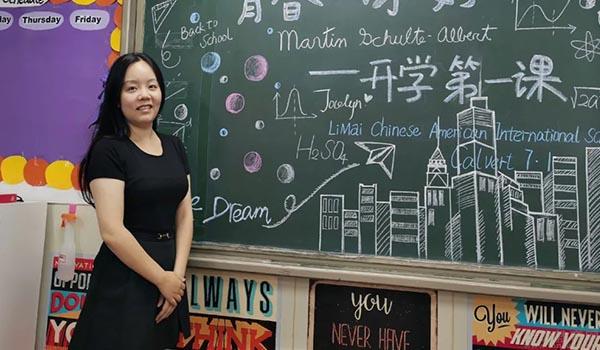 Schedule
day Thursday Friday
Back to School
Martin Schulte-Albert
一开学第一课
Jocelyn
LiMai Chinese American International
H₂SO₄
Calvert 7.1
Dream
OPPORT
DO
YOU
ALWAYS
THINK
you
NEVER HAVE
You WILL NEVER
KNOW YOUR